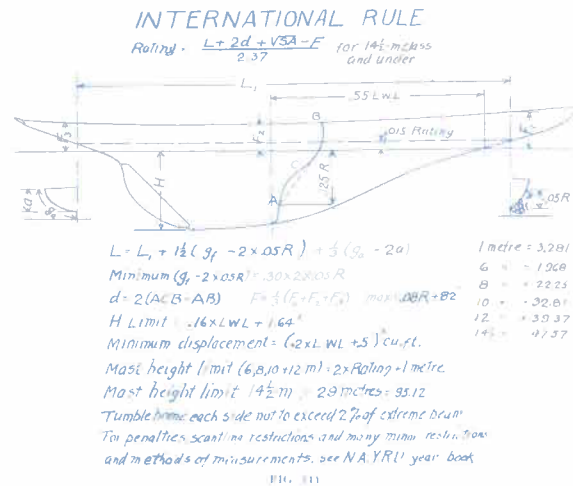 INTERNATIONAL RULE
Rating = L + 2d + √SA - F
2.37
for 14½-m class
and under
L₁
.55 LWL
B
F₃
F₂
F₁
.015 Rating
H
C
.125 R
A
.05R
L = L₁ + 1½ (gf - 2 x .05R) + ⅓ (ga - 2a)
Minimum (gf - 2 x .05R) = .30 x 2 x .05R
d = 2(ACB - AB) F = ⅓ (F₁ + F₂ + F₃) max .08R + .82
H Limit .16 x LWL + 1.64
Minimum displacement = (.2 x LWL + .5)³ cu. ft.
Mast height limit (6,8,10 + 12 m) = 2 x Rating + 1 metre
Mast height limit 14½ m 29 metres = 95.12
Tumble home each side not to exceed 2% of extreme beam
For penalties scantling restrictions and many minor restrictions
and methods of measurements, see N.A.Y.R.U. year book
1 metre = 3.281
6 " = 19.68
8 " = 22.25
10 " = 32.81
12 " = 39.37
14½ " = 47.57
FIG. 11